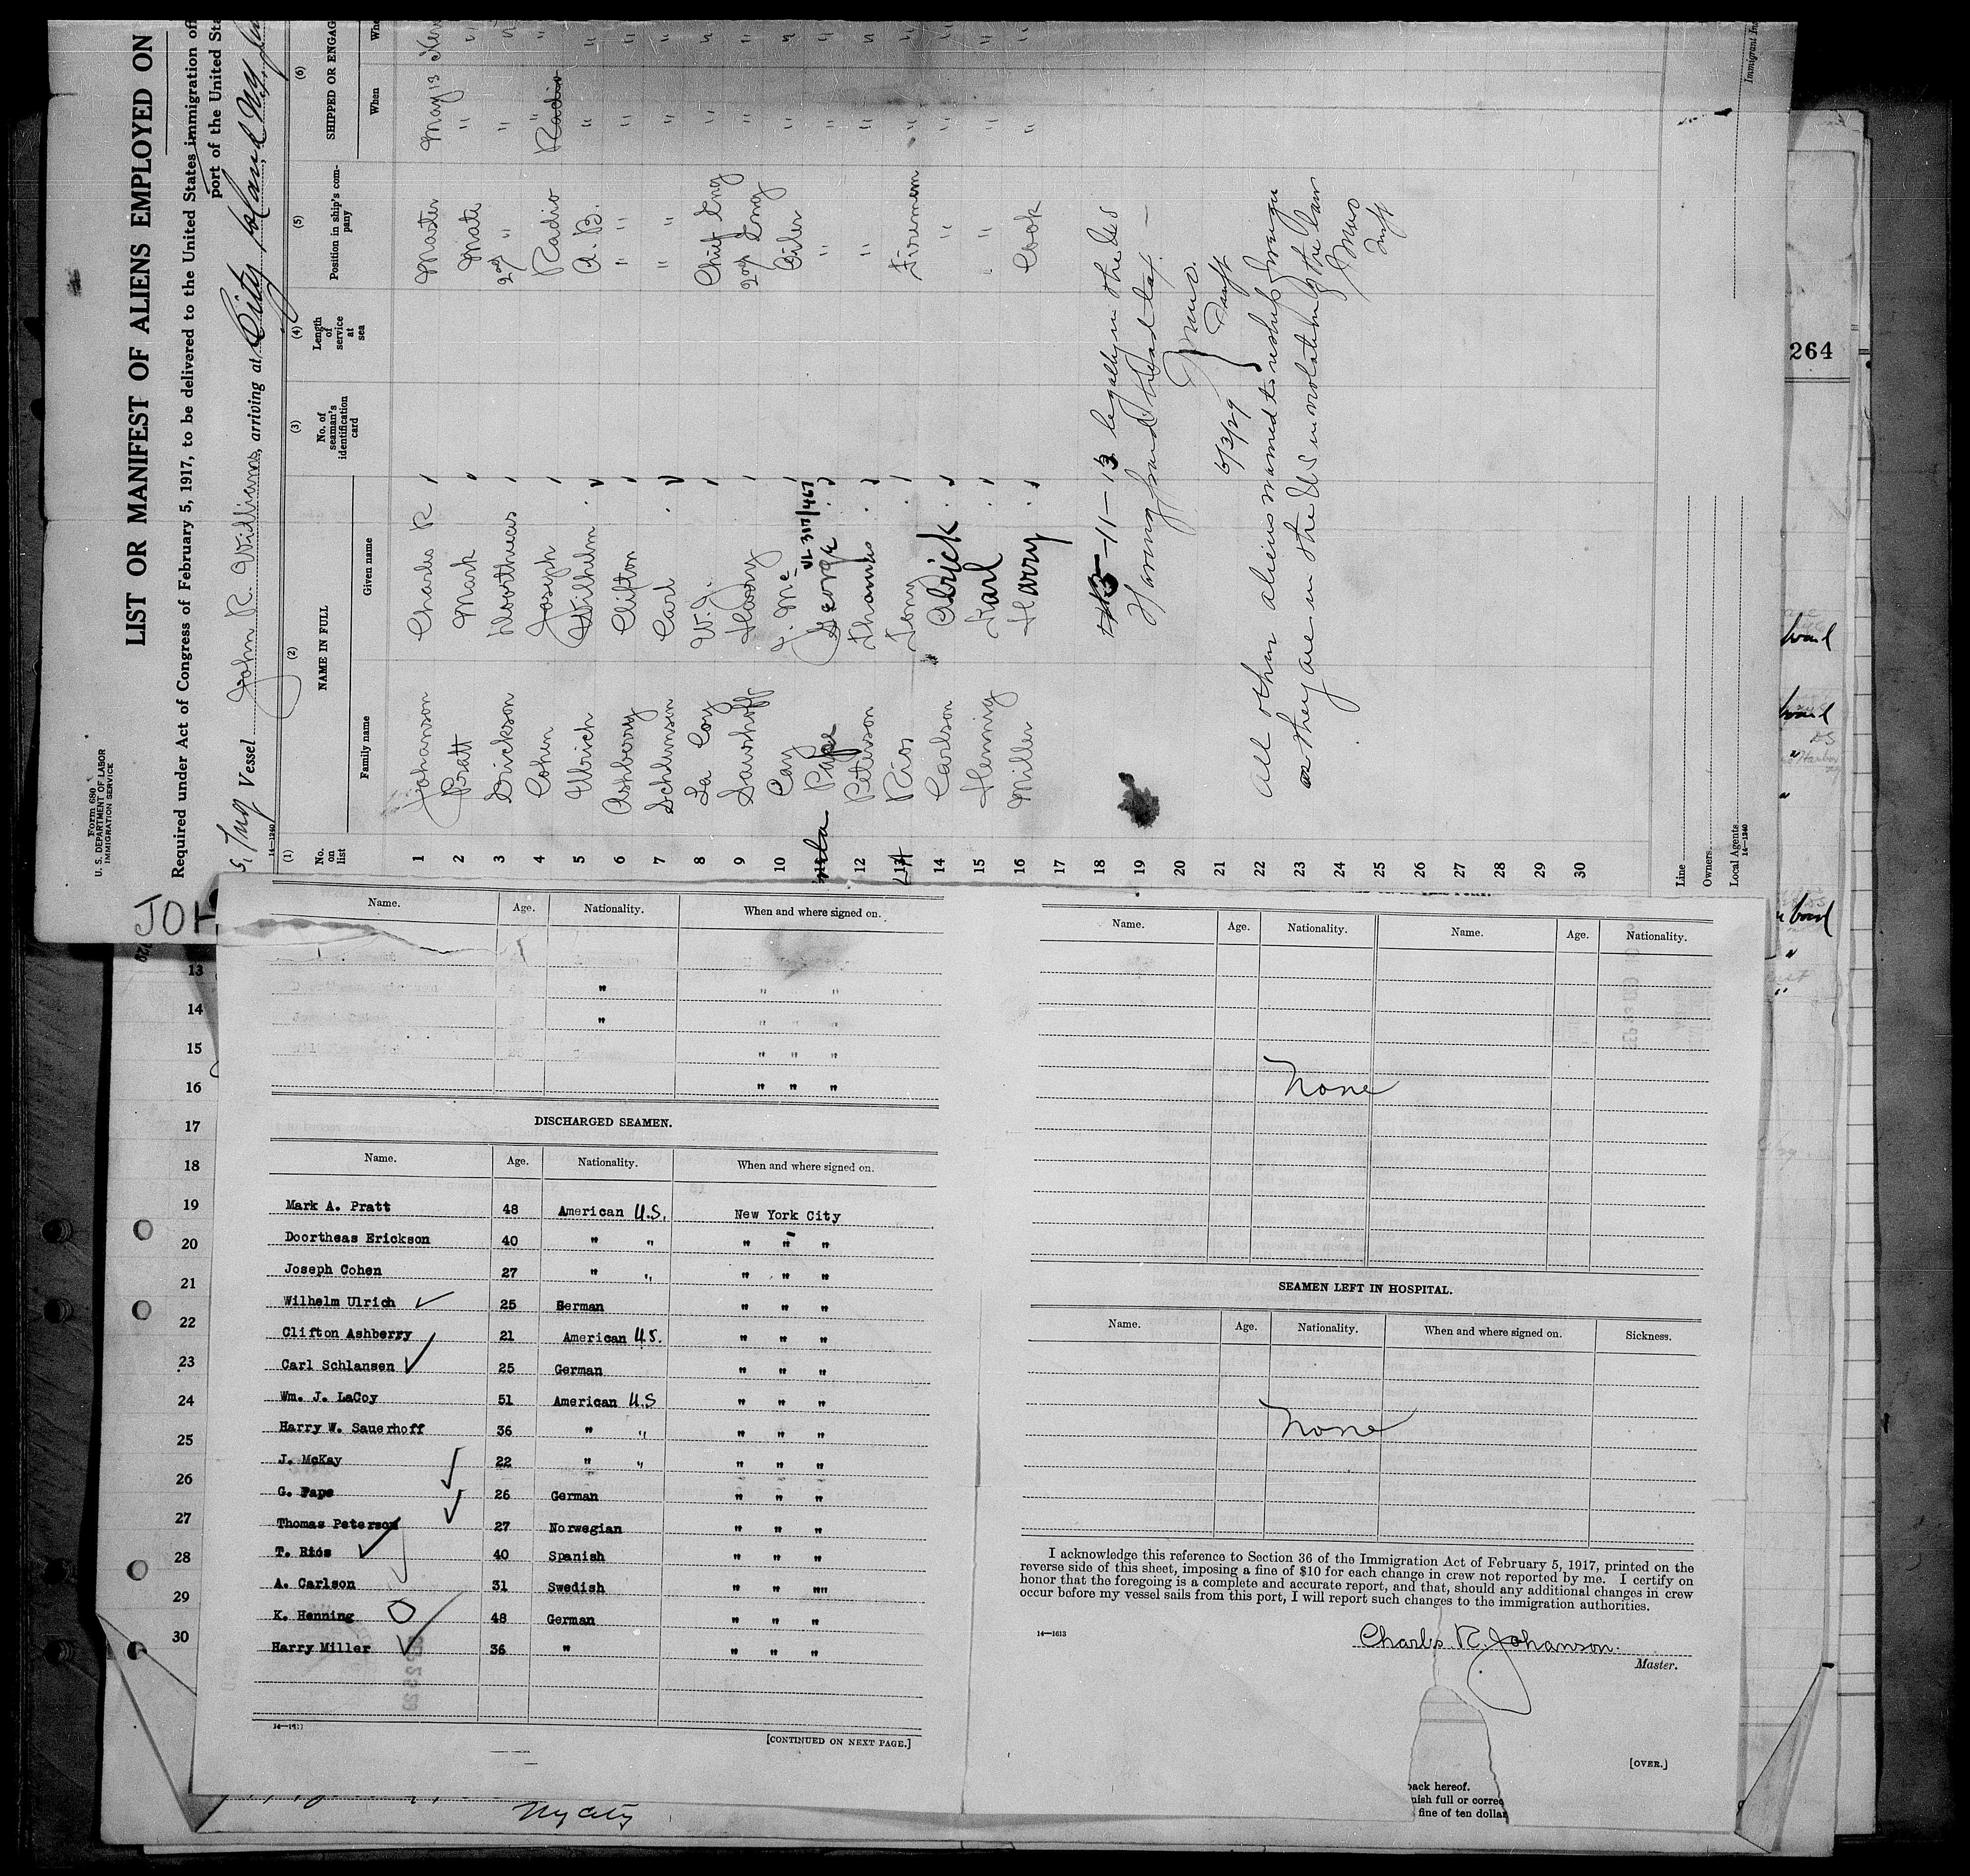 Form 680
U. S. DEPARTMENT OF LABOR
IMMIGRATION SERVICE
LIST OR MANIFEST OF ALIENS EMPLOYED ON
Required under Act of Congress of February 5, 1917, to be delivered to the United States immigration
port of the United
Vessel John R. Williams, arriving at City Island NY
14—1240
(1) (2) (3) (4) (5) (6)
No. on list
NAME IN FULL
Family name Given name
No. of seaman's identification card
Length of service at sea
Position in ship's company
SHIPPED OR ENGAG
When
1 Johanson Charles R Master May 13
2 Pratt Mark Mate "
3 Erickson Doortheus 2nd " "
4 Cohen Joseph Radio Radio "
5 Ulrich Wilhelm A. B. "
6 Ashberry Clifton " "
7 Schlunsen Carl " "
8 La Coy W. J. Chief Eng "
9 Saurhoff Harry 2nd Eng "
10 Cay J. Mc Oiler "
VL 317/467
11 Pape George " "
12 Peterson Thomas " "
13 Rios Tony Firemen "
14 Carlson Alrick " "
15 Henning Karl " "
16 Miller Harry Cook "
17
18 11-13 legally in the US
19 Having paid head tax.
20
21 6/3/29
22 All other aliens named to reship foreign
23 as they are in the US in violation of the law
24
25
26
27
28
29
30
Line
Owners
Local Agents
14—1240
Immigrant In
264
JOH
13
14
15
16
17
18
19
20
21
22
23
24
25
26
27
28
29
30
Name. Age. Nationality. When and where signed on.
" " "
" " "
" " "
" " "
DISCHARGED SEAMEN.
Name. Age. Nationality. When and where signed on.
Mark A. Pratt 48 American U.S. New York City
Doortheas Erickson 40 " " " " "
Joseph Cohen 27 " " " " "
Wilhelm Ulrich 25 German " " "
Clifton Ashberry 21 American U.S. " " "
Carl Schlansen 25 German " " "
Wm. J. LaCoy 51 American U.S " " "
Harry W. Sauerhoff 36 " " " " "
J. McKay 22 " " " " "
G. Pape 26 German " " "
Thomas Peterson 27 Norwegian " " "
T. Rios 40 Spanish " " "
A. Carlson 31 Swedish " " ""
K. Henning 48 German " " "
Harry Miller 36 " " " "
[CONTINUED ON NEXT PAGE.]
Name. Age. Nationality. Name. Age. Nationality.
None
SEAMEN LEFT IN HOSPITAL.
Name. Age. Nationality. When and where signed on. Sickness.
None
I acknowledge this reference to Section 36 of the Immigration Act of February 5, 1917, printed on the
reverse side of this sheet, imposing a fine of $10 for each change in crew not reported by me. I certify on
honor that the foregoing is a complete and accurate report, and that, should any additional changes in crew
occur before my vessel sails from this port, I will report such changes to the immigration authorities.
14—1613
Charles R. Johanson.
Master.
[OVER.]
back hereof.
nish full or correc
fine of ten dollar
NY City